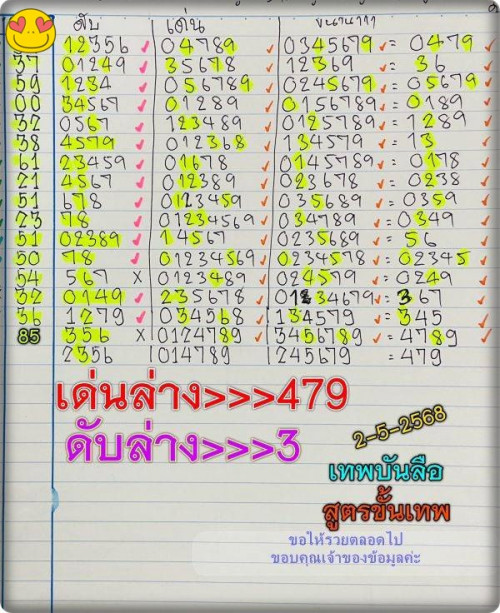 ดับ เด่น
12356 ✓ 04789 ✓ 0345679 ✓ = 0479
37 01249 ✓ 35678 ✓ 12369 ✓ = 36
59 1234 ✓ 056789 ✓ 0245679 ✓ = 05679
00 34567 ✓ 01289 ✓ 0156789 ✓ = 0189
32 0567 ✓ 123489 ✓ 0125789 ✓ = 1289
38 4579 ✓ 012368 ✓ 134579 ✓ = 13
61 23459 ✓ 01678 ✓ 0145789 ✓ = 0178
21 4567 ✓ 012389 ✓ 023678 ✓ = 0238
51 678 ✓ 0123459 ✓ 035689 ✓ = 0359
23 78 ✓ 01234569 ✓ 034789 ✓ = 0349
51 02389 ✓ 14567 ✓ 0235689 ✓ = 56
50 78 ✓ 01234569 ✓ 0234578 ✓ = 02345
54 567 X 0123489 ✓ 024579 ✓ = 0249
32 0149 ✓ 235678 ✓ 01234679 ✓ = 367
36 1279 ✓ 034568 ✓ 134579 ✓ = 345
85 356 X 0124789 ✓ 3456789 ✓ = 4789
2356 014789 245679 = 479
เด่นล่าง>>>479
ดับล่าง>>>3
2-5-2568
เทพบันลือ
สูตรขั้นเทพ
ขอให้รวยตลอดไป
ขอบคุณเจ้าของข้อมูลค่ะ